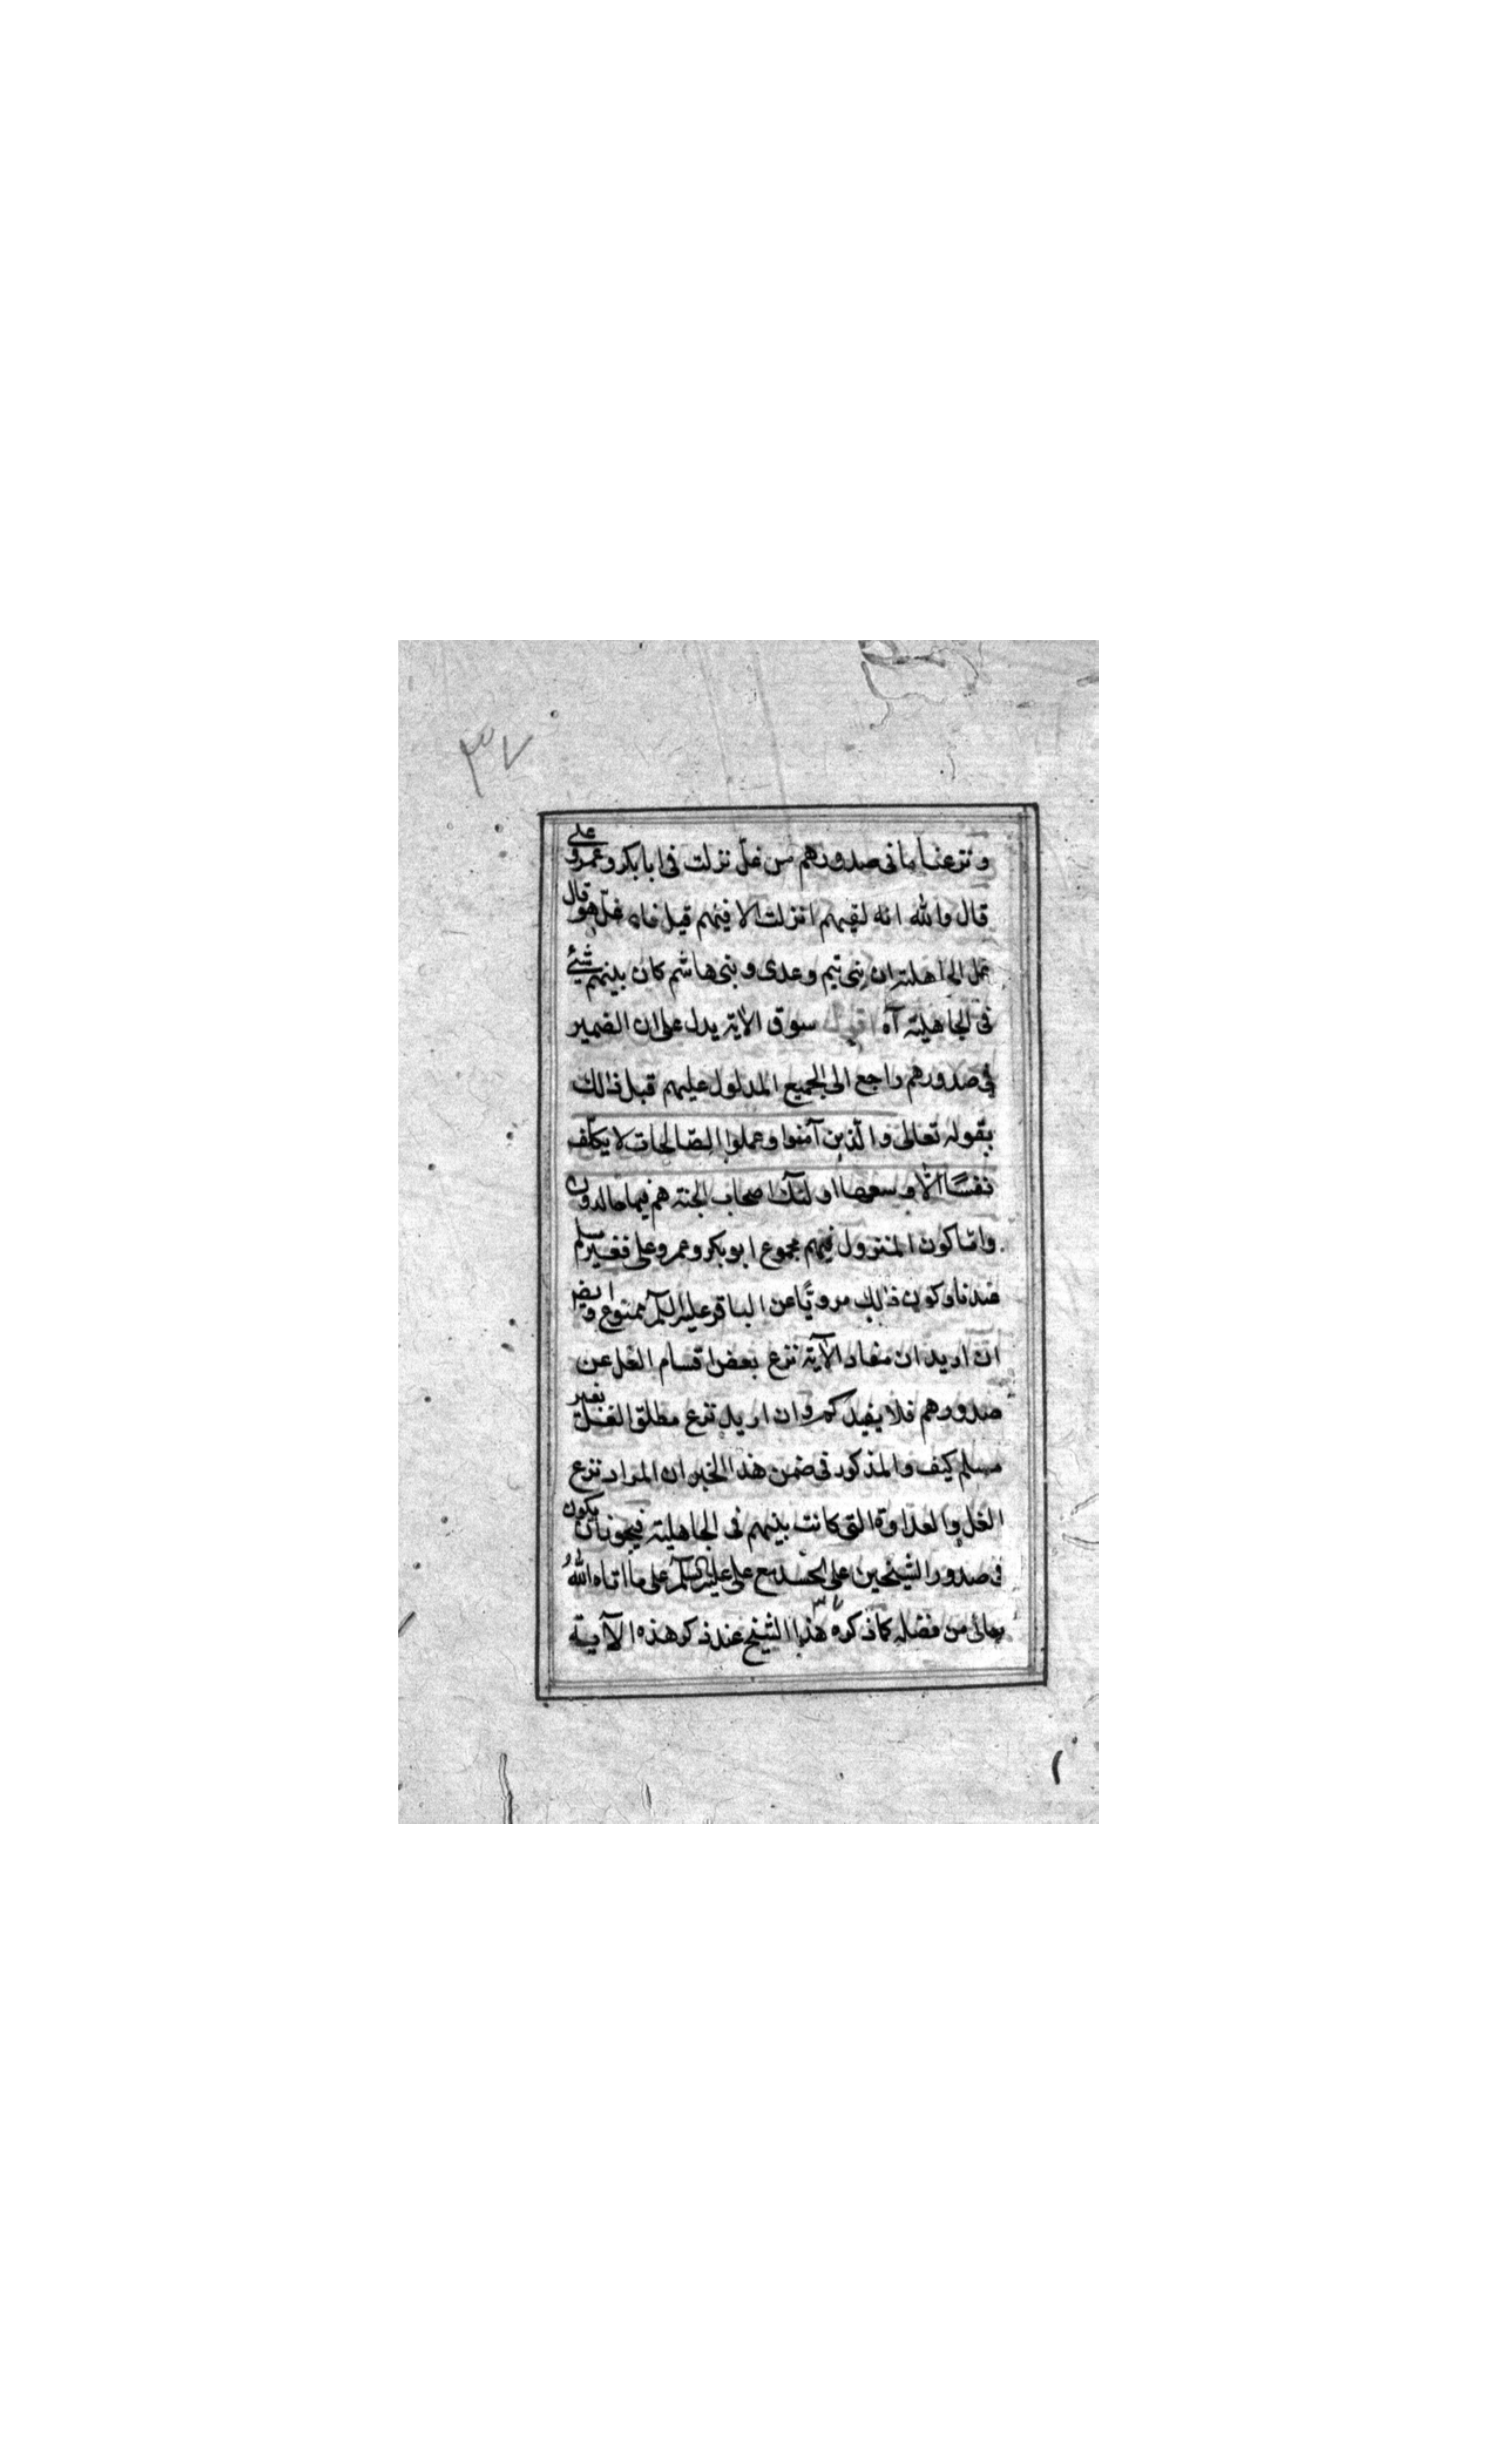 ٣٧
ونزعنا ما فى صدورهم من غلّ نزلت فى ابا بكر وعمر وعلى
قال والله انه لفيهم انزلت الا فيهم قيل فاى غلّ هو قال
غل الجاهلية ان بنى تيم وعدى وبنى هاشم كان بينهم شئ
فى الجاهلية آه اقول سوق الاية يدل على ان الضمير
فى صدورهم راجع الى الجميع المدلول عليهم قبل ذالك
بقوله تعالى والّذين آمنوا وعملوا الصّالحات لا يكلّف
نفسًا الّا وسعها اولئك اصحاب الجنة هم فيها خالدون
وامّا كون المنزول فيهم مجموع ابو بكر وعمر وعلى فغير مسلم
عندنا وكون ذالك مرويًا عن الباقر عليه السلم ممنوع وايضا
ان اريد ان مفاد الآية نزع بعض اقسام الغل عن
صدورهم فلا يفيدكم وان اريد نزع مطلق الغلّ فغير
مسلم كيف والمذكور فى ضمن هذا الخبر ان المراد نزع
الغل والعداوة التى كانت بينهم فى الجاهلية فيجوز ان يكون
فى صدور الشيخين على الحسد مع على عليه السلم على ما اتاه اللهُ
تعالى من فضله كما ذكره هذا الشيخ عند ذكر هذه الآية